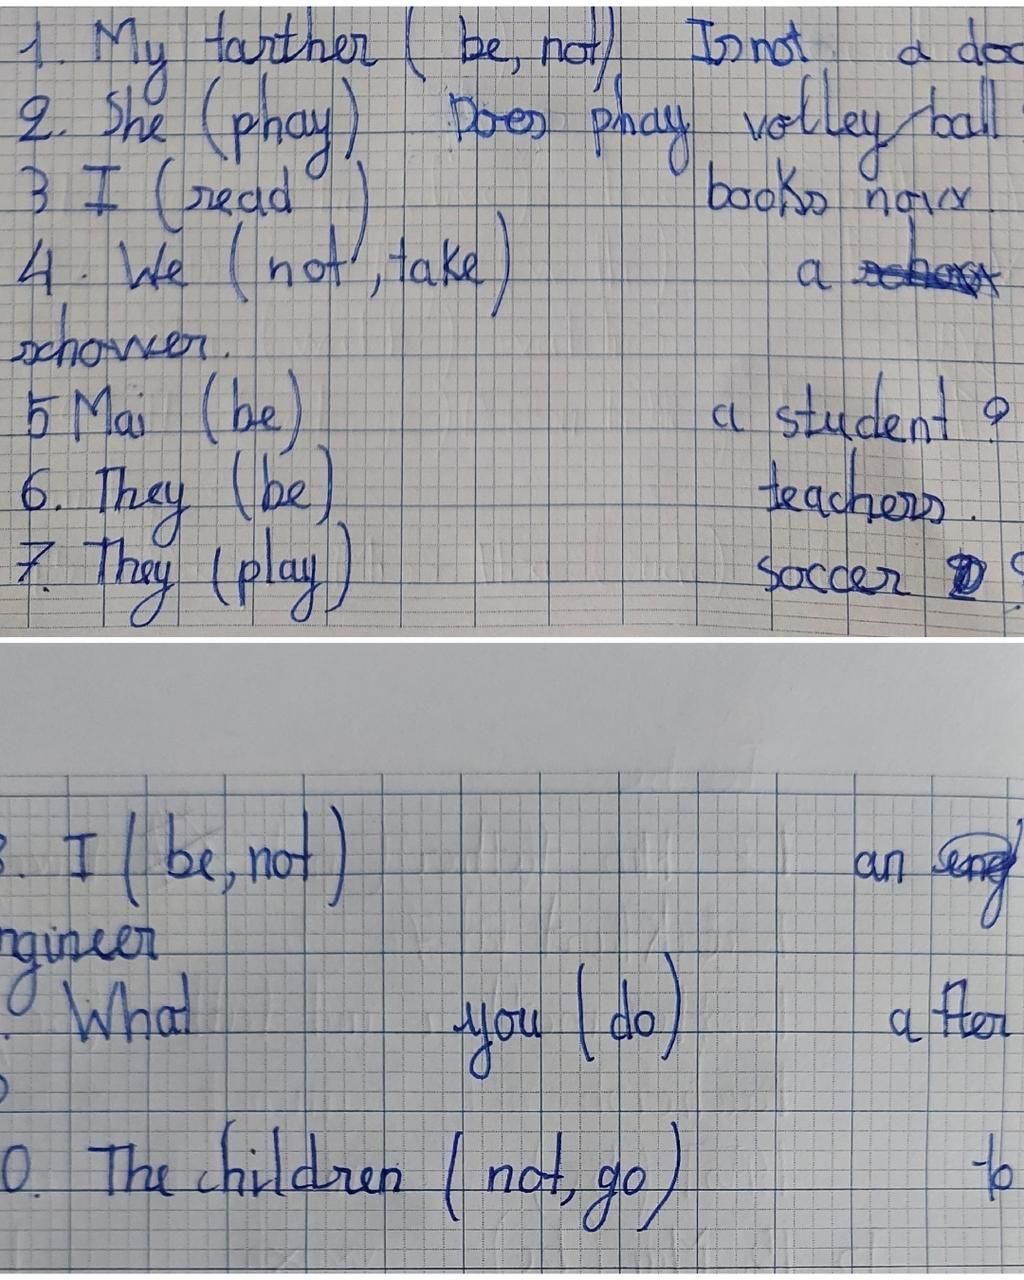 1. My tarther ( be, not) Is not a doc
2. She (phay) Does phay volleyball
3 I (read ) books now
4. We (not, take) a
schower.
5 Mai (be) a student ?
6. They (be) teachers.
7. They (play) soccer ?
. I ( be, not ) an
ngineer
. What you ( do ) after
0. The children ( not, go ) to